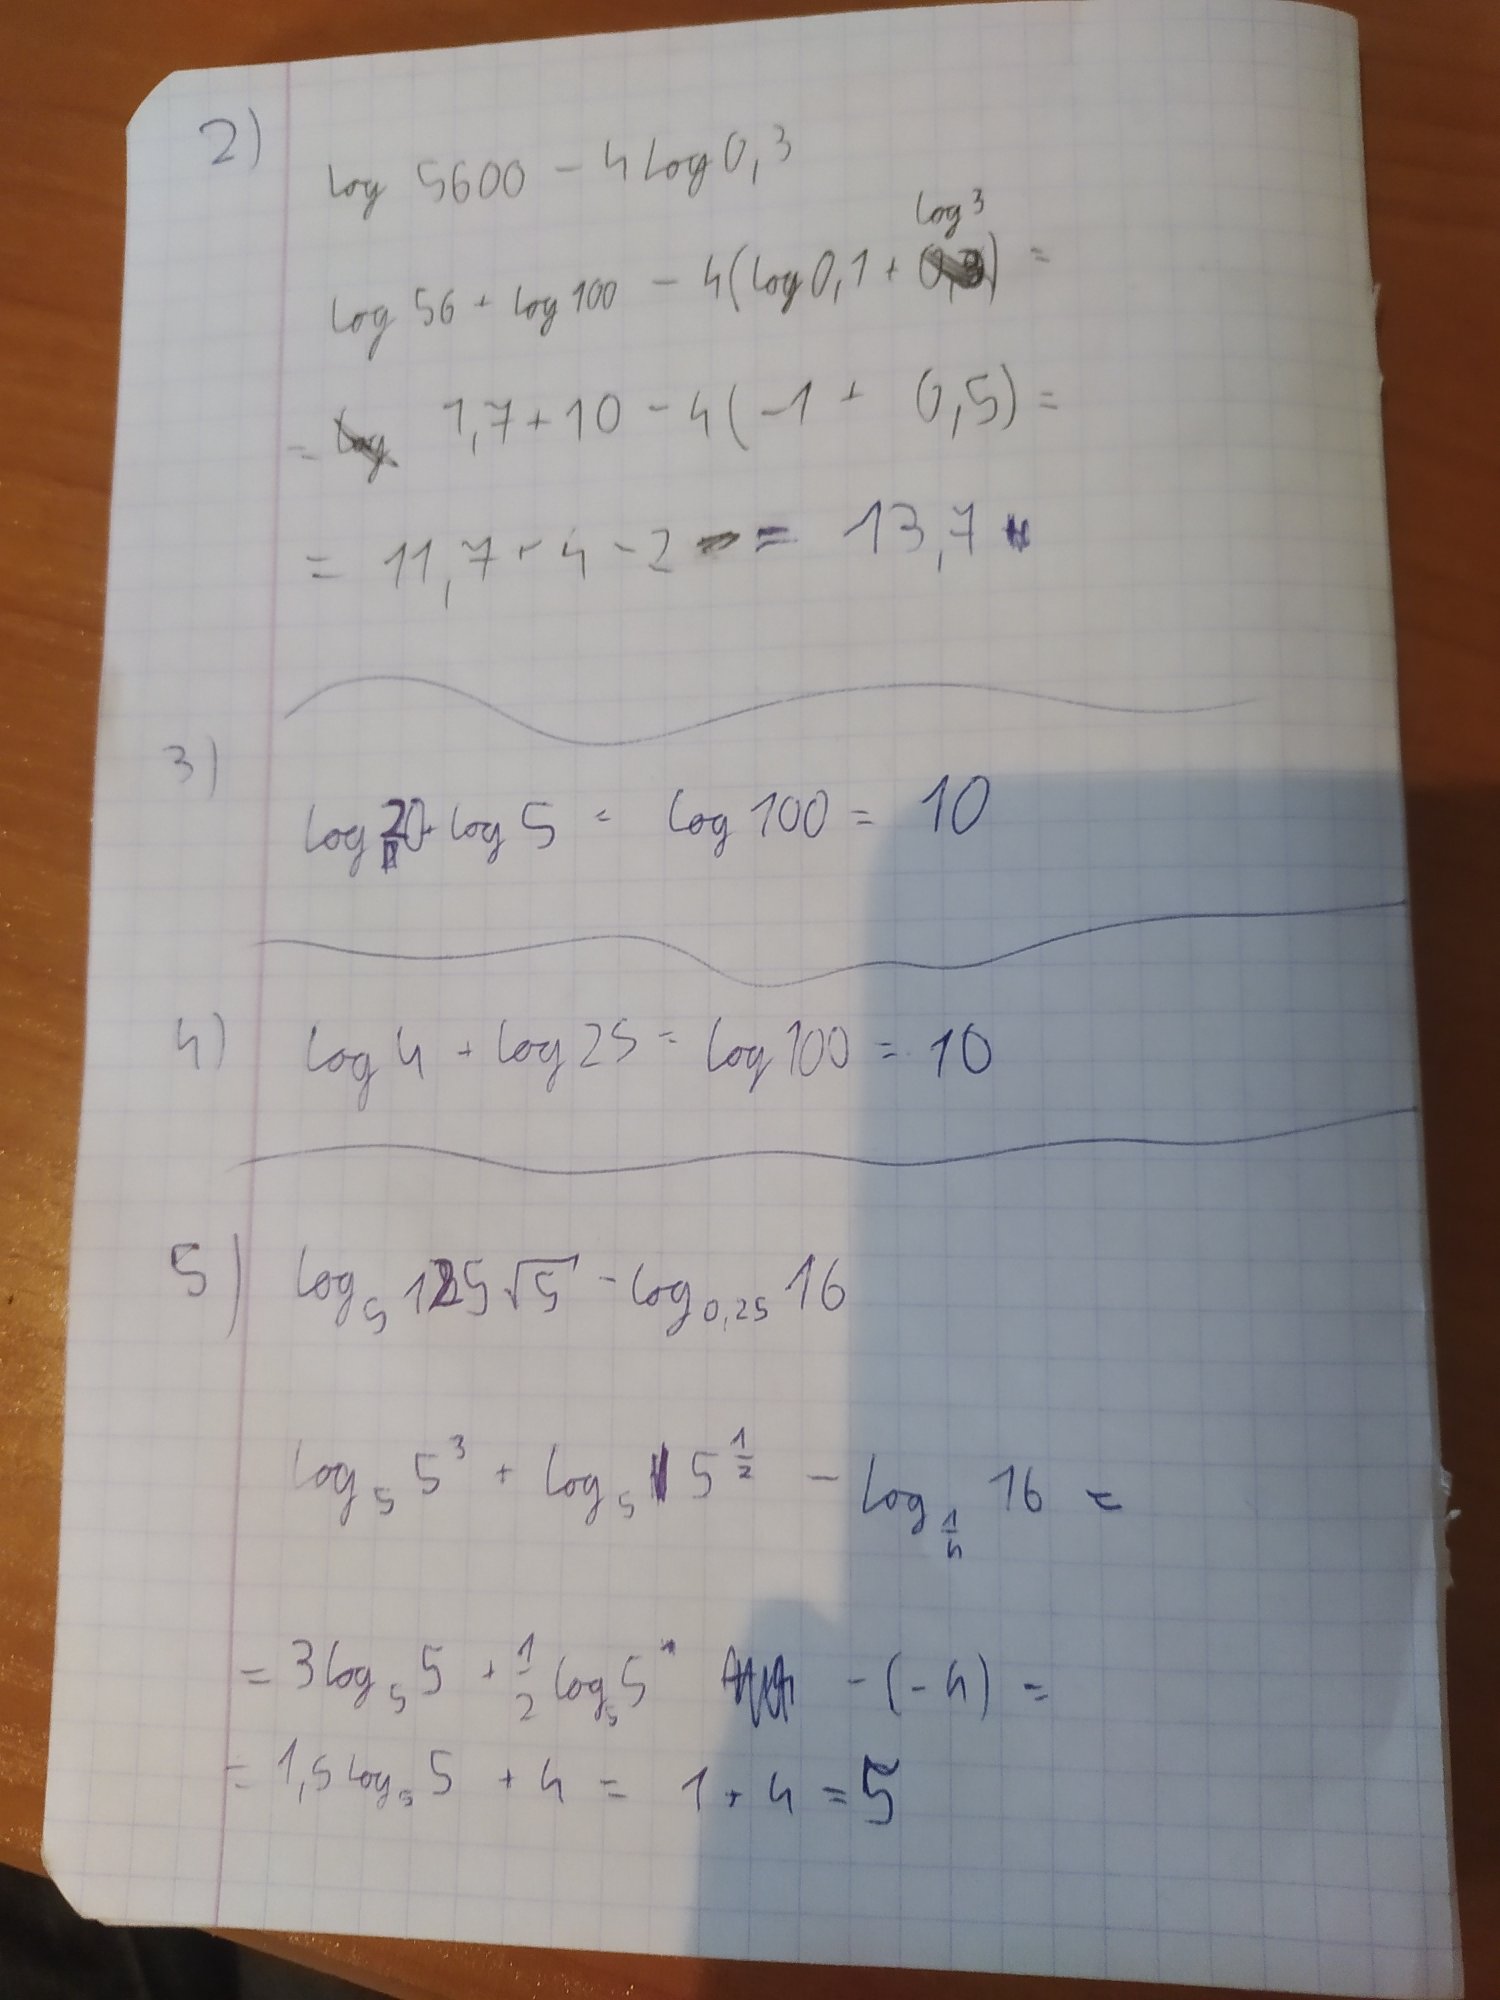 2)
log 5600 - 4 log 0,3
log 3
log 56 + log 100 - 4(log 0,1 + ) =
= 1,7 + 10 - 4(-1 + 0,5) =
= 11,7 + 4 - 2 = 13,7
3)
log 20 + log 5 = log 100 = 10
4) log 4 + log 25 = log 100 = 10
5) log₅ 125√5 - log₀,₂₅ 16
log₅ 5³ + log₅ 5^½ - log_¼ 16 =
= 3 log₅ 5 + ½ log₅ 5 - (-4) =
= 1,5 log₅ 5 + 4 = 1 + 4 = 5